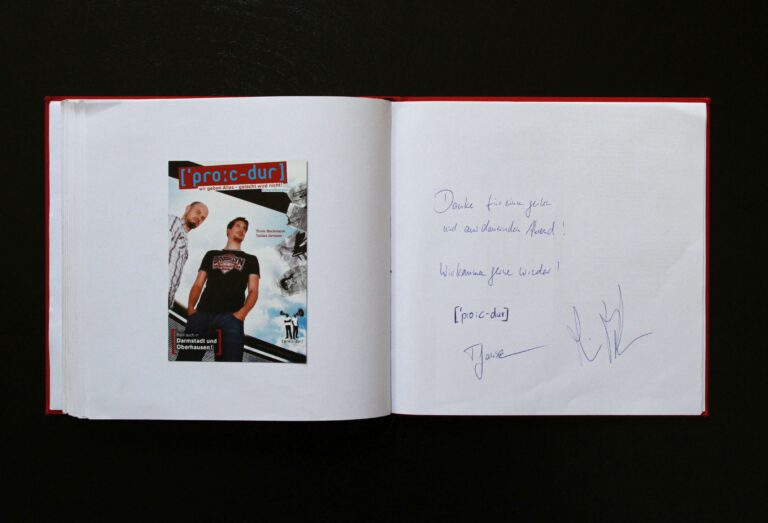 ['pro:c-dur]
wir geben Alles - gelacht wird nicht!
Timm Beckmann
Tobias Janssen
Bald auch in
Darmstadt und
Oberhausen!
Danke für einen geilen
und ausdauernden Abend!
Wir kommen gerne wieder!
['p:o:c-dur]